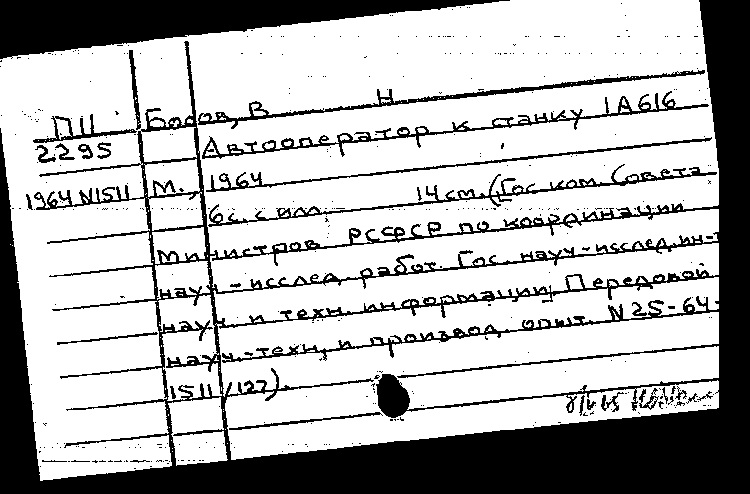 ПII Бобов, В Н
2295 Автооператор к станку 1А616
1964 N1511 М., 1964
6с. с илл. 14 см. (Гос ком. Совета
Министров РСФСР по координации
науч-исслед. работ. Гос. науч-исслед. ин-т
науч. и техн. информации. Передовой
науч.-техн. и производ. опыт. N 25-64-
1511/127).